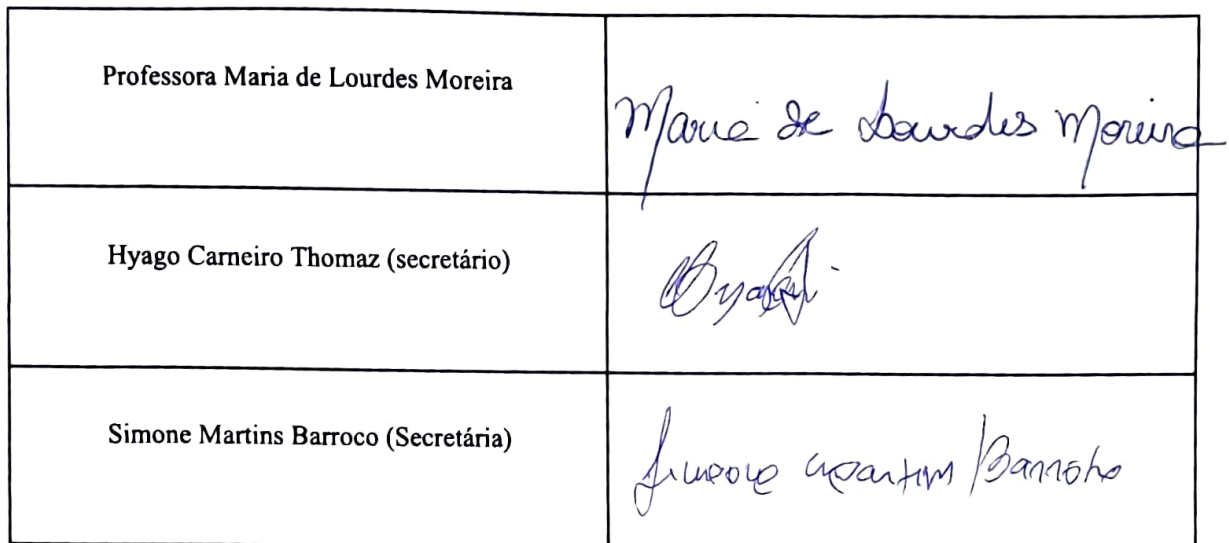 Professora Maria de Lourdes Moreira
Maria de Lourdes Moreira
Hyago Carneiro Thomaz (secretário)
Simone Martins Barroco (Secretária)
Simone Martins Barroco